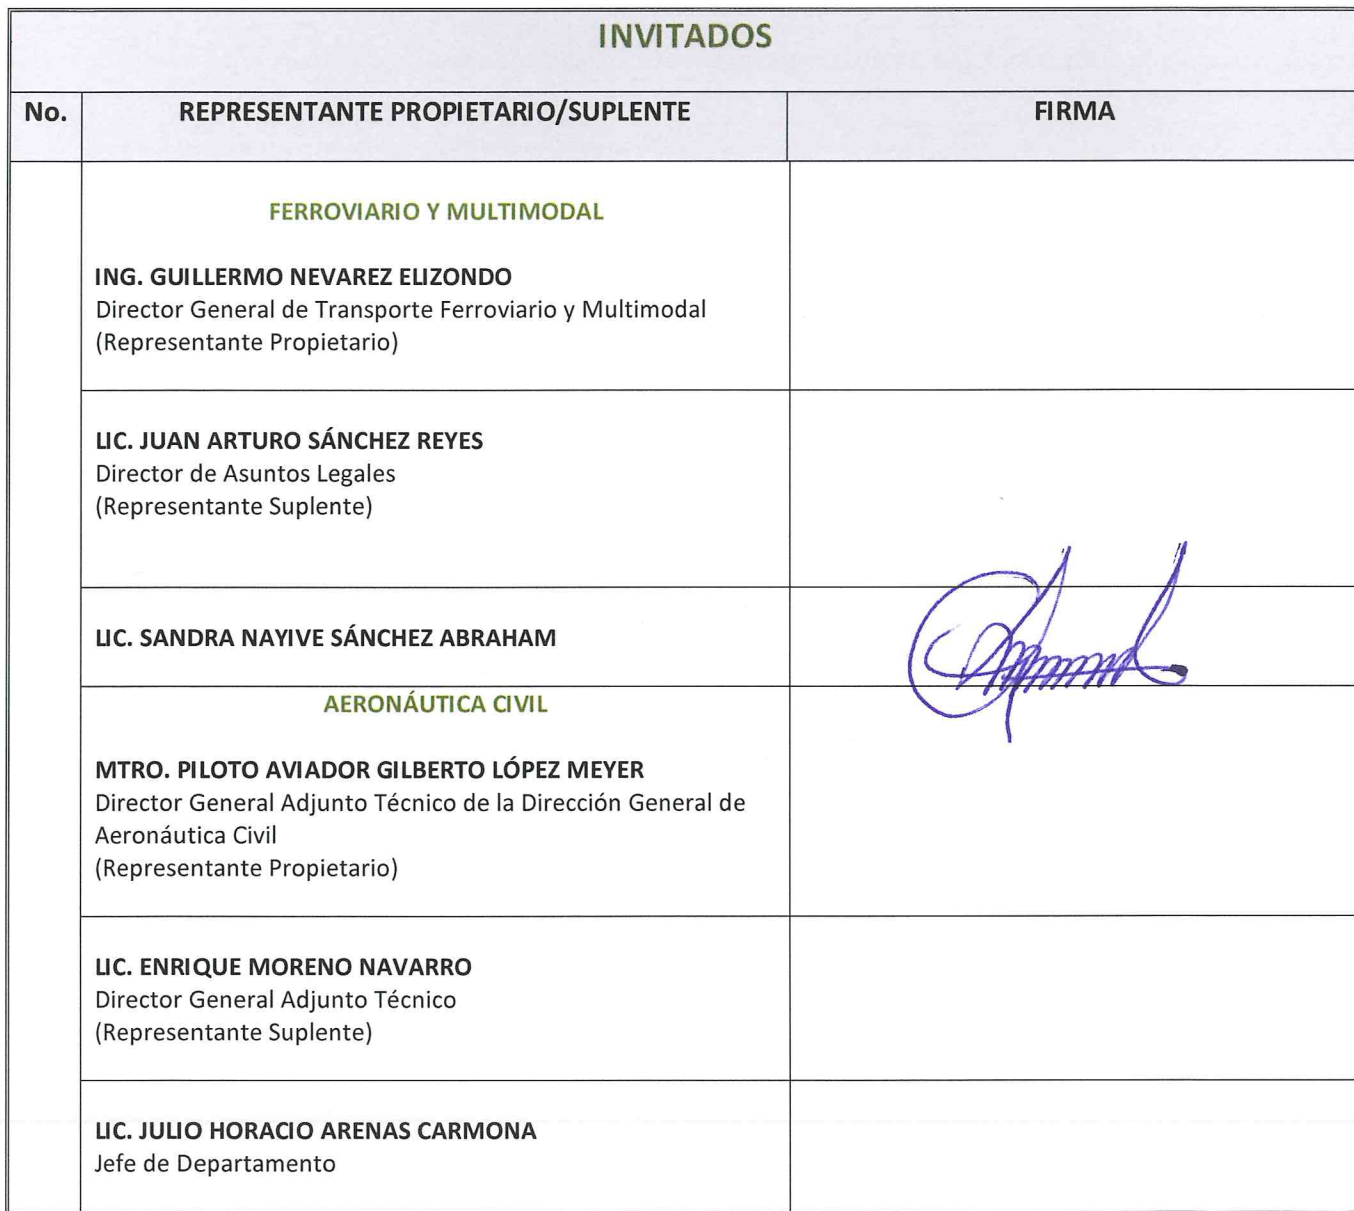 INVITADOS
No. REPRESENTANTE PROPIETARIO/SUPLENTE FIRMA
FERROVIARIO Y MULTIMODAL
ING. GUILLERMO NEVAREZ ELIZONDO
Director General de Transporte Ferroviario y Multimodal
(Representante Propietario)
LIC. JUAN ARTURO SÁNCHEZ REYES
Director de Asuntos Legales
(Representante Suplente)
LIC. SANDRA NAYIVE SÁNCHEZ ABRAHAM
AERONÁUTICA CIVIL
MTRO. PILOTO AVIADOR GILBERTO LÓPEZ MEYER
Director General Adjunto Técnico de la Dirección General de
Aeronáutica Civil
(Representante Propietario)
LIC. ENRIQUE MORENO NAVARRO
Director General Adjunto Técnico
(Representante Suplente)
LIC. JULIO HORACIO ARENAS CARMONA
Jefe de Departamento